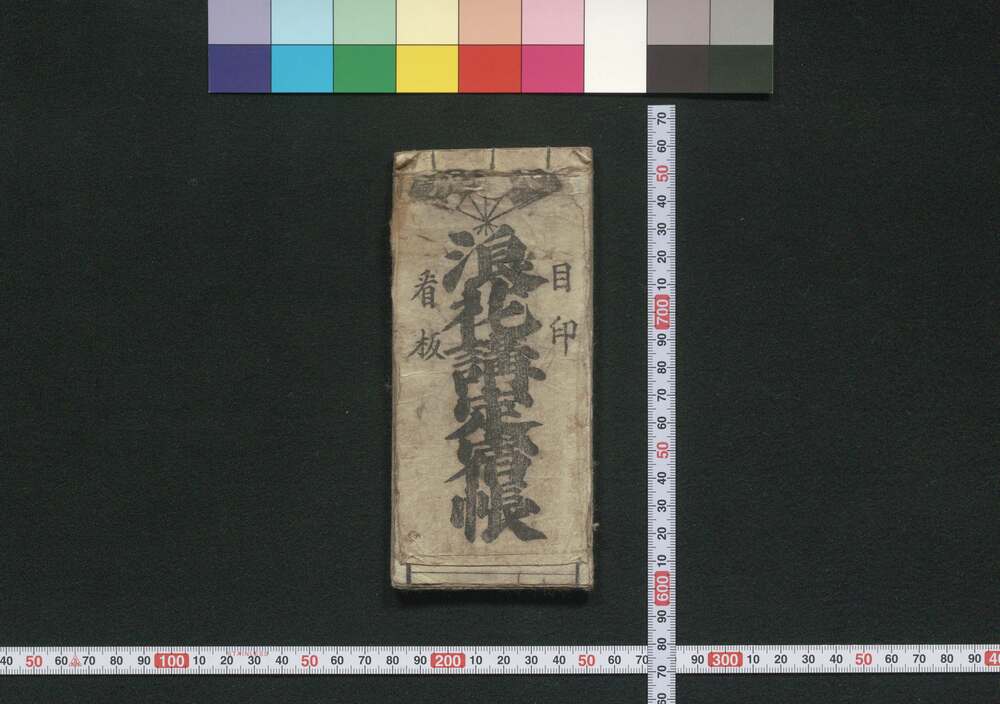 目印
浪花講定宿帳
看板
70
60
50
40
30
20
10
700
90
80
70
60
50
40
30
20
10
600
90
80
70
60
40 50 60 70 80 90 100 10 20 30 40 50 60 70 80 90 200 10 20 30 40 50 60 70 90 300 10 20 30 40 50 60 70 80 90 40